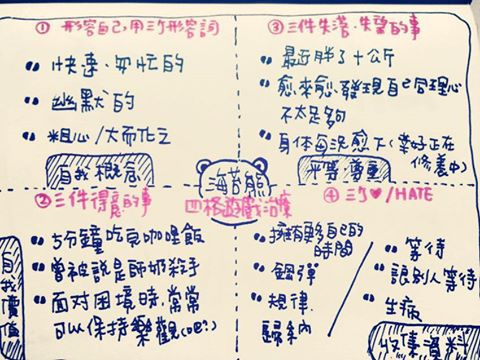 ① 形容自己,用三个形容詞
快速、匆忙的
幽默的
粗心/大而化之
自我概念
③ 三件失落、失望的事
最近胖了十公斤
愈來愈發現自己同理心
不太足夠
身体每況愈下(幸好正在
修養中)
平等/尊重
海苔熊
四格遊戲治療
② 三件得意的事
5分鐘吃完咖哩飯
曾被說是師奶殺手
面对困境時,常常
可以保持樂觀(吧?)
自我價值
④ 三个♥/HATE
擁有更多自己的
時間
鋼彈
規律.
歸納
等待
讓別人等待
生病
收集資料